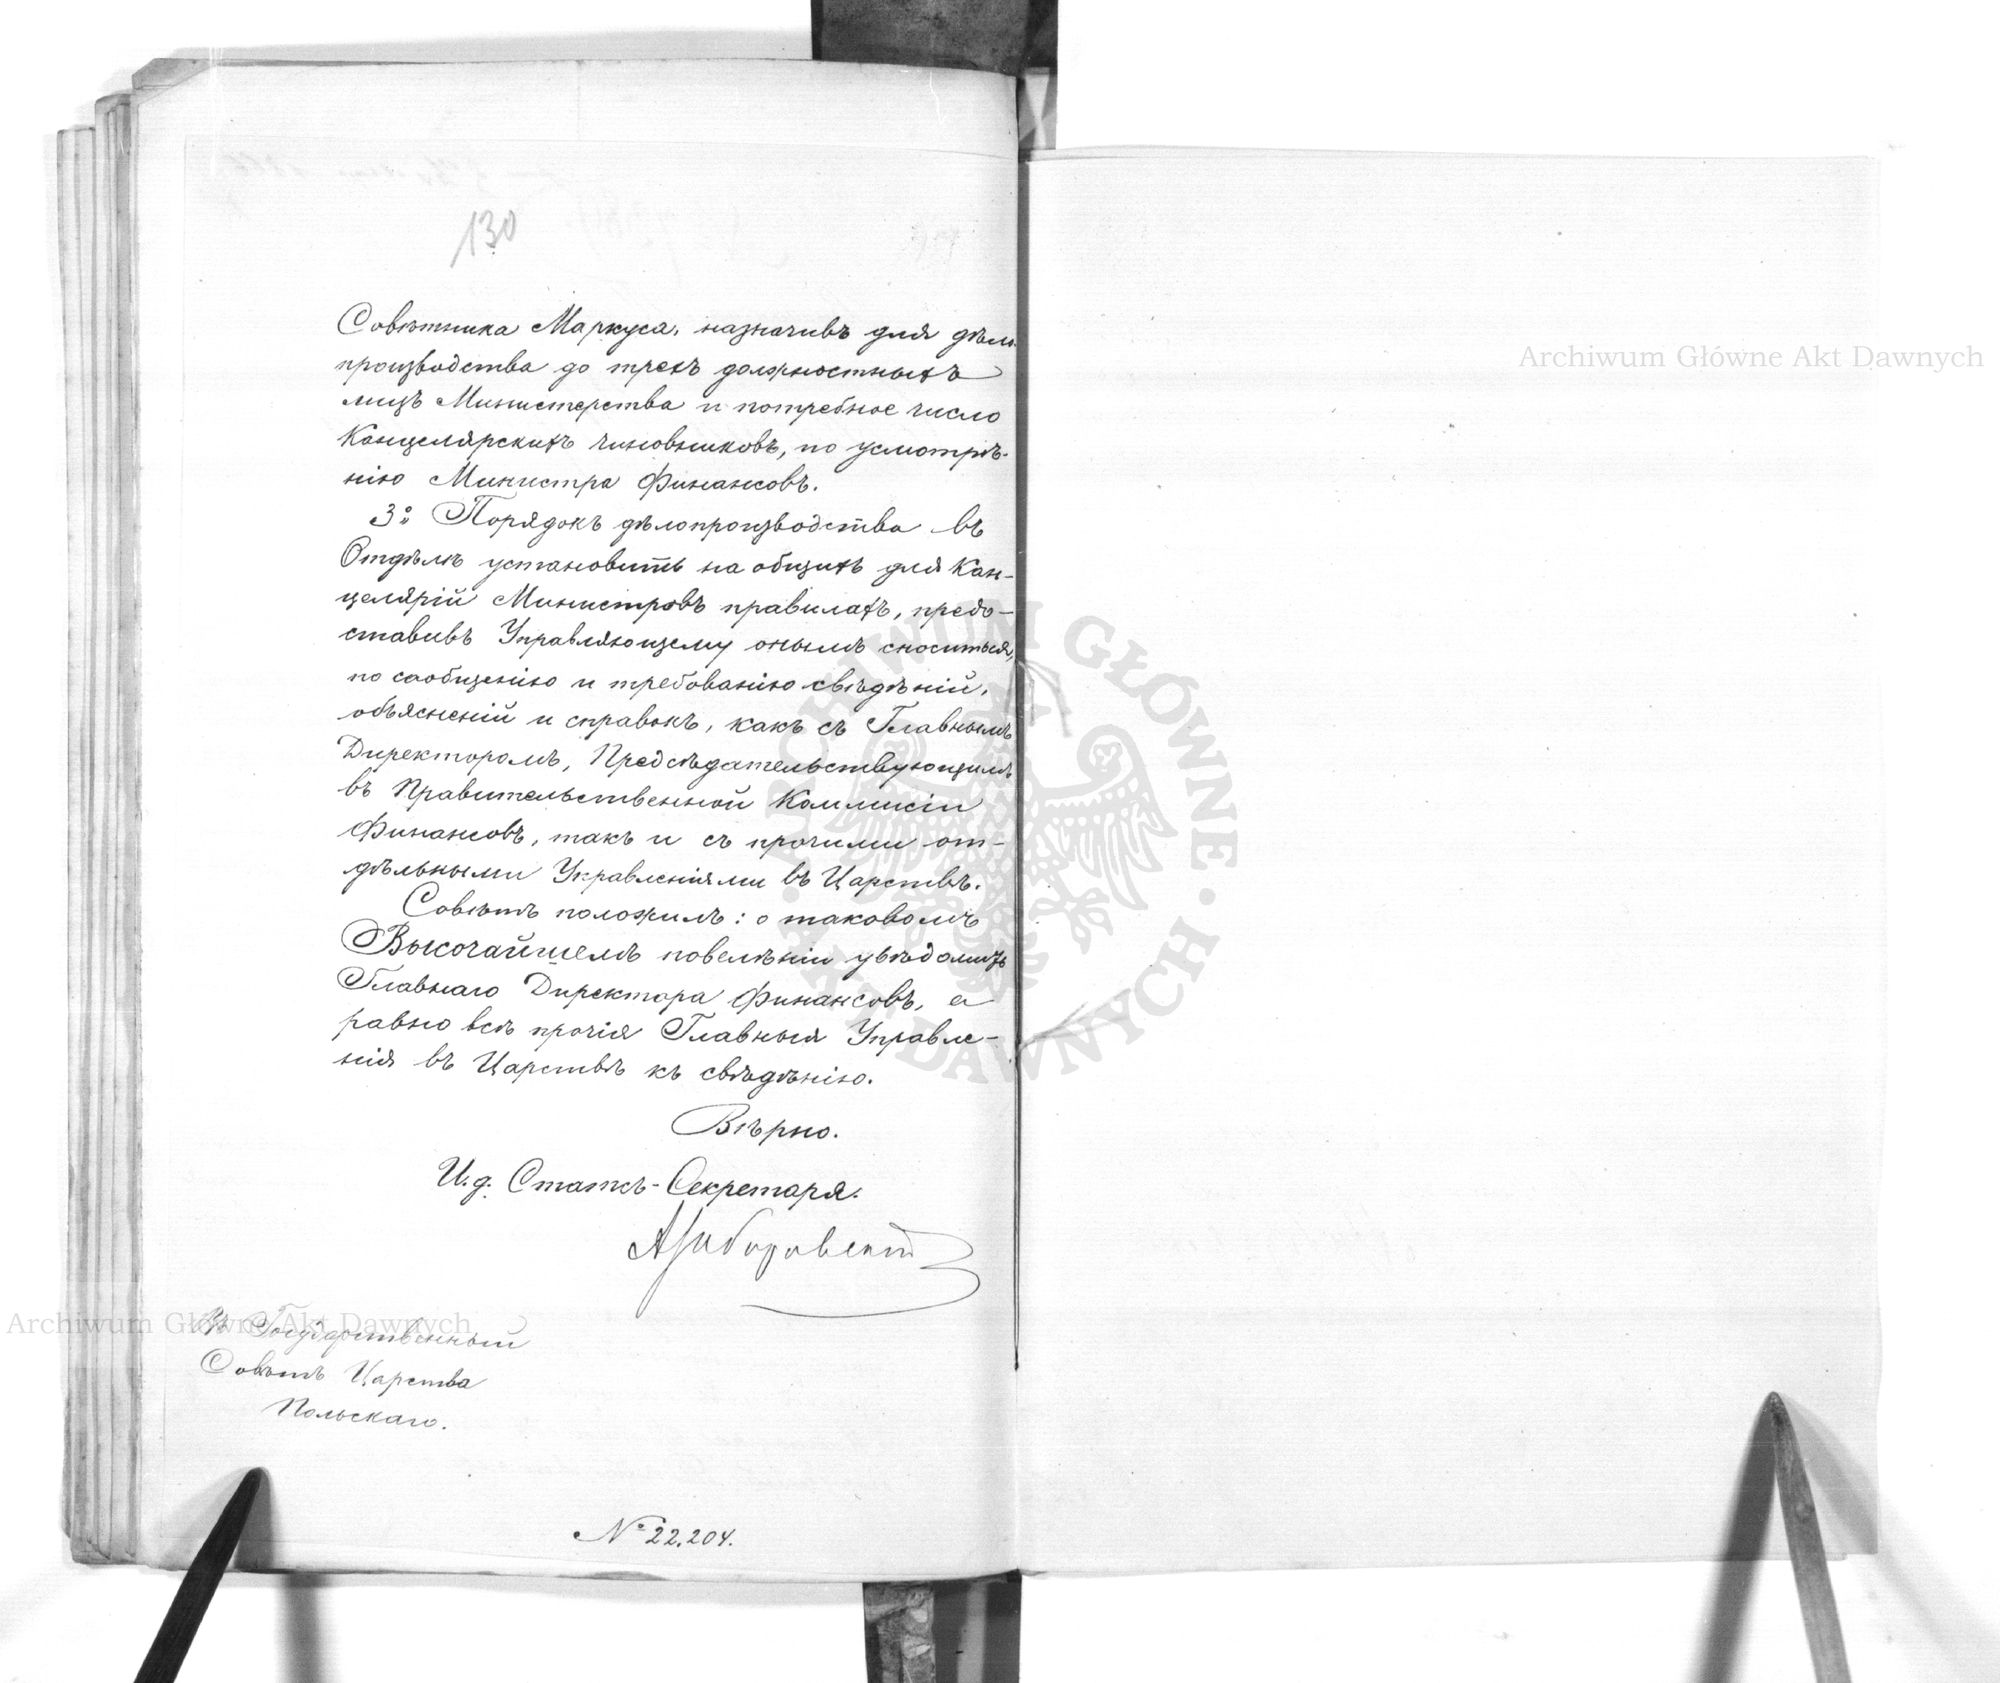 130
Совѣтника Маркуса, назначивъ для дѣло-
производства до трехъ должностныхъ
лицъ Министерства и потребное число
Канцелярскихъ чиновниковъ, по усмотрѣ-
нію Министра Финансовъ.
3º Порядокъ дѣлопроизводства въ
Отдѣлѣ установить на общихъ для Кан-
целярій Министровъ правилахъ, предо-
ставивъ Управляющему онымъ сноситься,
по сообщенію и требованію свѣдѣній,
объясненій и справокъ, какъ съ Главнымъ
Директоромъ, Предсѣдательствующимъ
въ Правительственной Коммисіи
Финансовъ, такъ и съ прочими от-
дѣльными Управленіями въ Царствѣ.
Совѣтъ положилъ: о таковомъ
Высочайшемъ повелѣніи увѣдомить
Главнаго Директора Финансовъ, а
равно всѣ прочія Главныя Управле-
нія въ Царствѣ къ свѣдѣнію.
Вѣрно.
И. д. Статсъ-Секретаря.
Въ Государственный
Совѣтъ Царства
Польскаго.
№ 22,204.
Archiwum Główne Akt Dawnych
Archiwum Główne Akt Dawnych
ARCHIWUM GŁÓWNE · AKT DAWNYCH ·